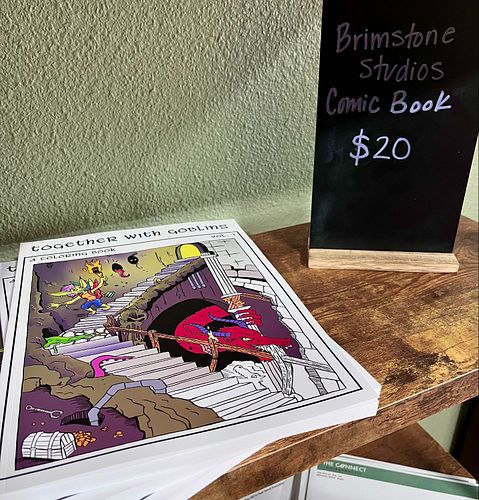 Brimstone
Studios
Comic Book
$20
together with goblins
VOL. 1
A COLORING BOOK
THE CONNECT